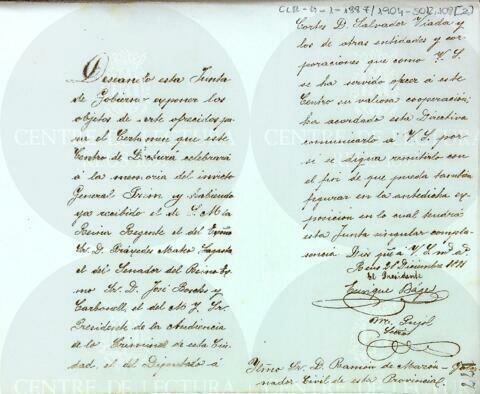 CLR-U-1-1887/1904-S012,109[2]
Deseando esta Junta
de Gobierno exponer los
objetos de arte ofrecidos pa-
ra el Certamen que este
Centro de Lectura celebrará
á la memoria del invicto
General Prim y habiendo
ya recibido el de S. M. la
Reina Regente el del Exmo
Sr. D. Práxedes Mateo Sagasta
el del Senador del Reino Ex-
mo Sr. D. José Bosch y
Carbonell, el del M. I. Sr.
Presidente de la Audiencia
de lo Criminal de esta Ciu-
dad, el del Diputado á
Cortes D. Salvador Viada y
los de otras entidades y cor-
poraciones que como V. S.
se ha servido ofrecer á este
Centro su valiosa cooperación,
ha acordado esta Directiva
comunicarlo á V. S. por
si se digna remitirlo con
el fin de que pueda tambien
figurar en la antedicha ex-
posicion en lo cual tendrá
esta Junta singular compla-
cencia Dios gue á V. S. m. a.
Reus 21 Diciembre
El Presidente
Enrique Bages
M. Pujol
Srio
Iltmo Sr. D. Ramon de Mazón - Gober-
nador Civil de esta Provincia
CENTRE DE LECTURA
CENTRE DE LECTURA
CENTRE DE LECTURA
CENTRE DE LECTURA